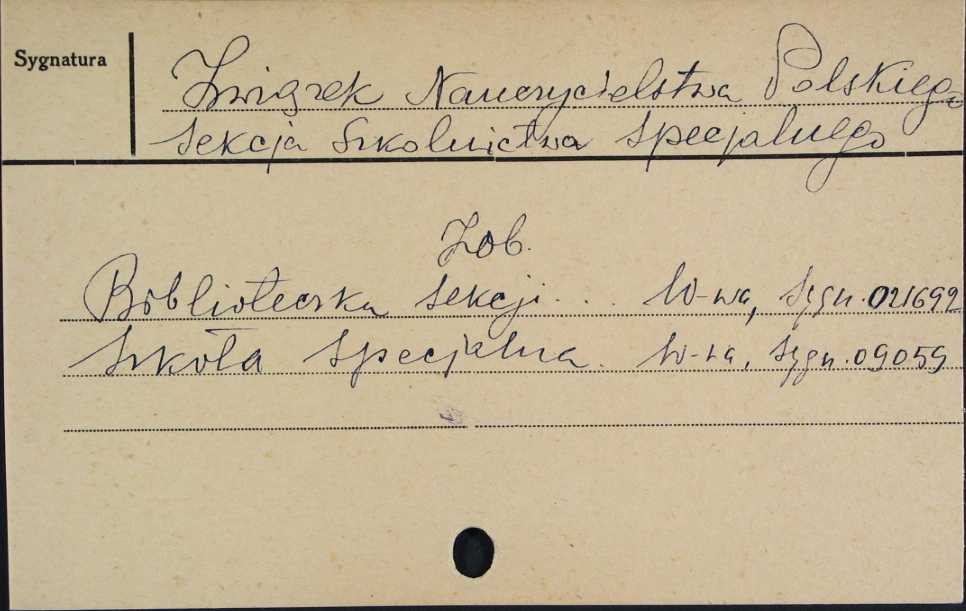 Sygnatura
Związek Nauczycielstwa Polskiego
Sekcja Szkolnictwa Specjalnego
Zob.
Biblioteczka Sekcji... W-wa, Sygn. 021692
Szkoła Specjalna. W-wa, Sygn. 09059